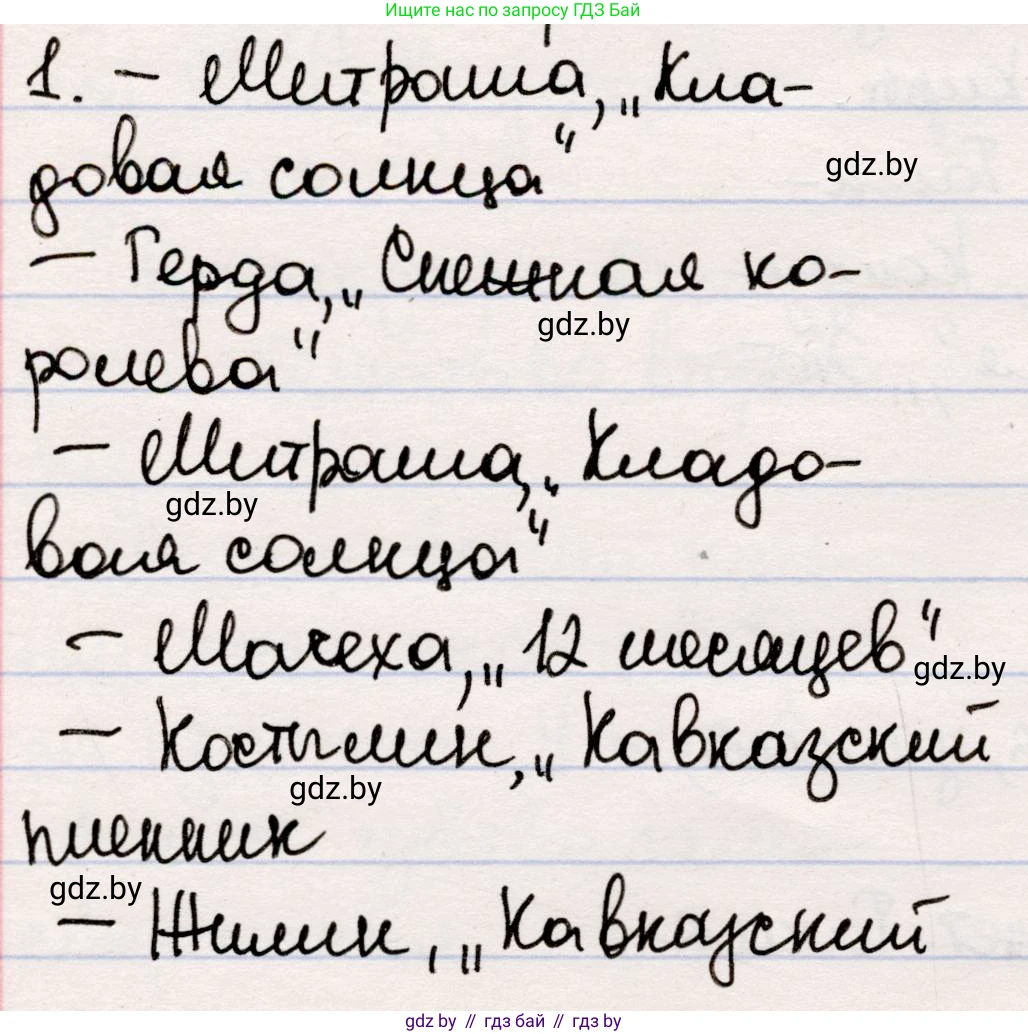 Ищите нас по запросу ГДЗ Бай
1. – Митраша, „Кла-
довая солнца“
gdz.by
– Герда, „Снежная ко-
gdz.by
ролева“
– Митраша, „Кладо-
gdz.by
вая солнца“
– Мачеха, „12 месяцев“
gdz.by
– Костылин, „Кавказский
gdz.by
пленник
gdz.by
– Жилин, „Кавказский
gdz.by // гдз бай // гдз by